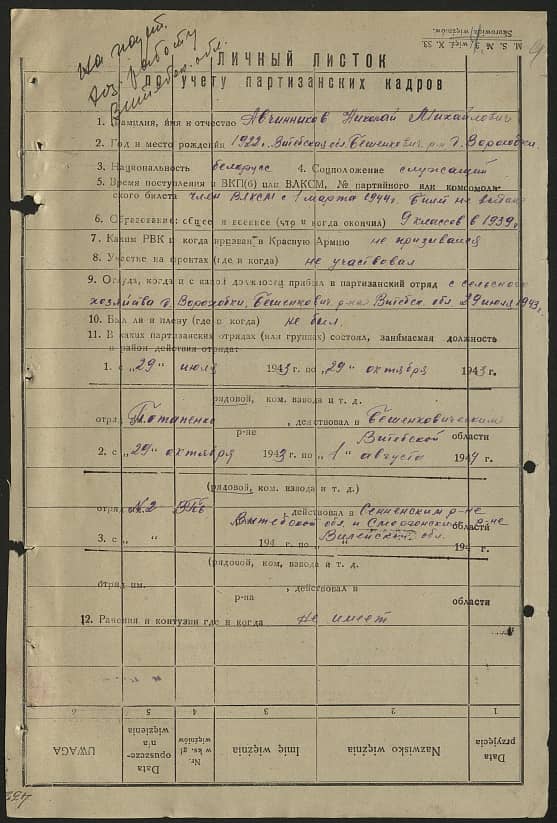 M. S. № 2/więź. X. 53.
Skorowidz więźniów.
на парт.
хоз. работу
Витебск. обл.
ЛИЧНЫЙ ЛИСТОК
по учету партизанских кадров
1. Фамилия, имя и отчество Авчинников Николай Михайлович
2. Год и место рождения 1922г. Витебская обл. Бешенкович. р-н д. Ворохобки.
3. Национальность белорусс 4. Соцположение служащий
5. Время поступления в ВКП(б) или ВЛКСМ, № партийного или комсомоль-
ского билета член ВЛКСМ с 1 марта 1944г. Билет не выдан
6. Образование: общее и военное (что и когда окончил) 9 классов в 1939г
7. Каким РВК и когда призван в Красную Армию не призывался
8. Участие на фронтах (где и когда) не участвовал
9. Откуда, когда и с какой должности прибыл в партизанский отряд с сельского
хозяйства д. Ворохобки, Бешенкович. р-на Витебск. обл. 29 июля 1943г.
10. Был ли в плену (где и когда) не был.
11. В каких партизанских отрядах (или группах) состоял, занимаемая должность
и район действия отряда:
1. с „29“ июля 1943 г. по „29“ октября 1943 г.
(рядовой, ком. взвода и т. д.
отряд им. Потапенко, действовал в Бешенковическим
р-не Витебской области
2. с „29“ октября 1943 г. по „1“ августа 1944 г.
(рядовой, ком. взвода и т. д.)
отряд №2, действовал в Сенненским р-не
Витебской обл. и Сморгонским р-не области
3. с „ “ 194 г. по „ “ Вилейской обл. 194 г.
(рядовой, ком. взвода и т. д.
отряд им. , действовал в
р-на области
12. Ранения и контузии где и когда не имеет
6 5 4 3 2 1
UWAGA
Data opuszczenia więzienia
Nr. w ks. gł. więźniów
Imię więźnia
Nazwisko więźnia
Data przyjęcia